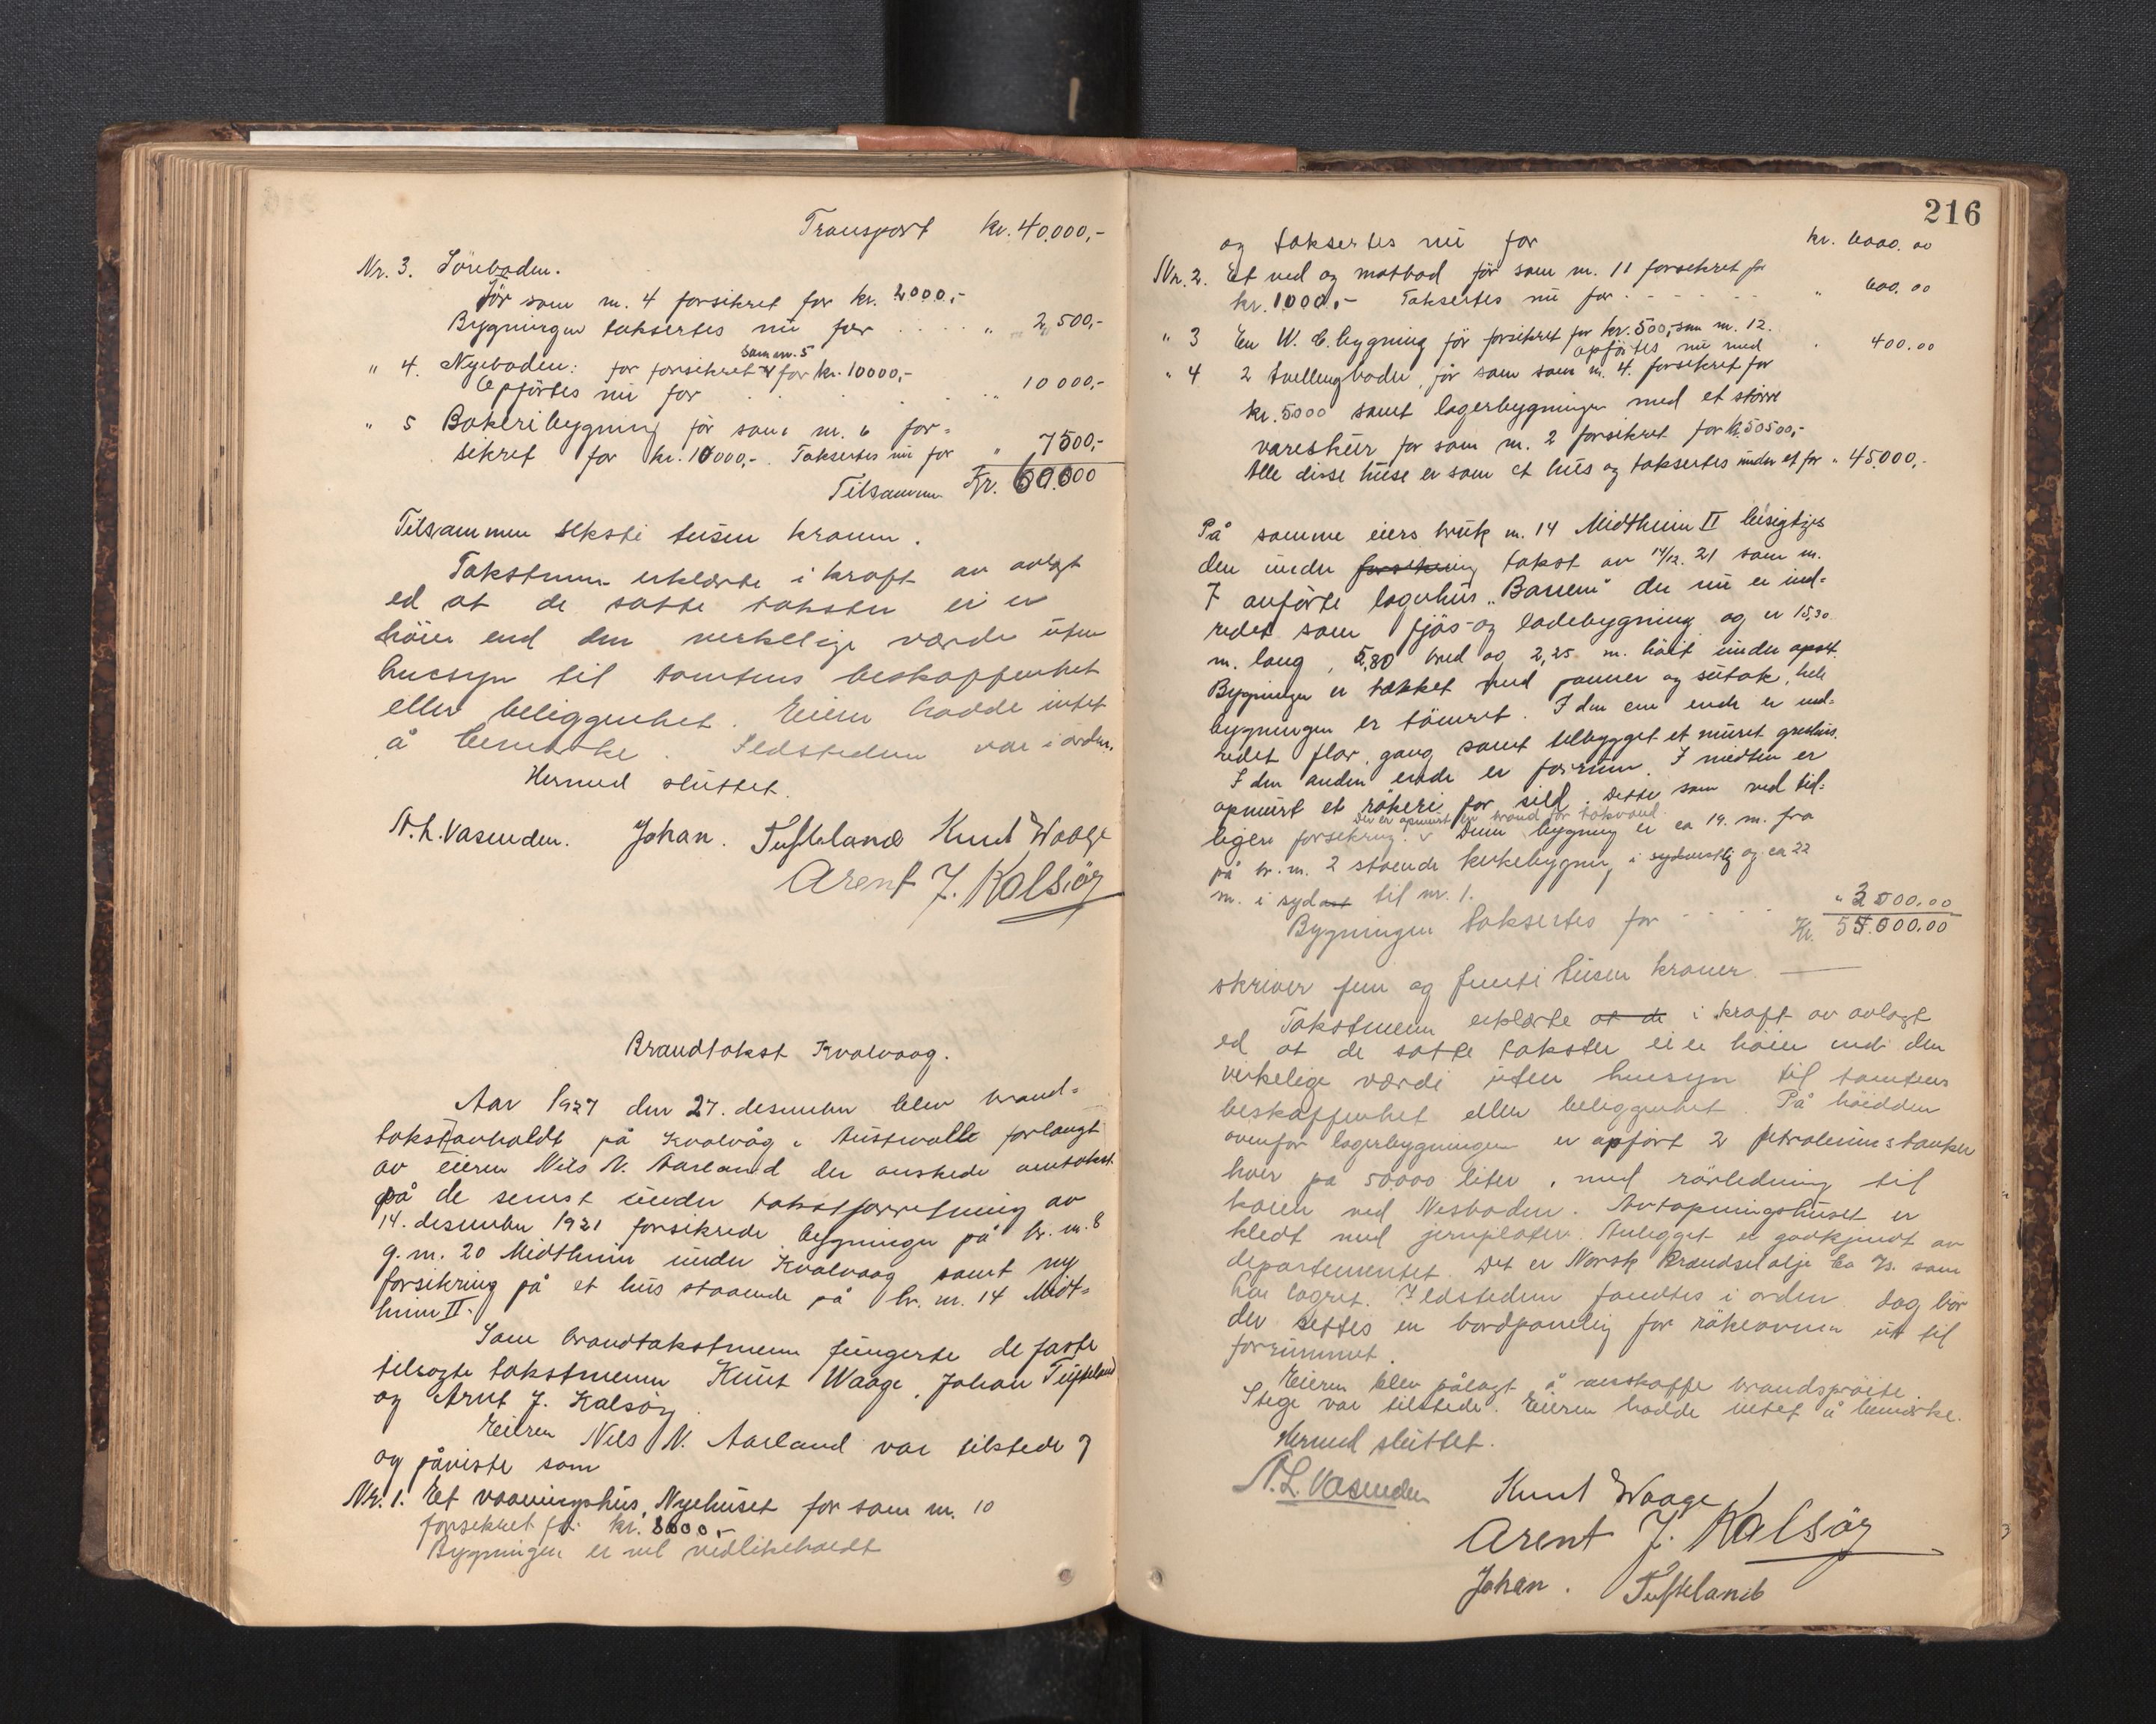 Transport kr. 40.000,-
Nr. 3. Söreboden.
För som nr. 4 forsikret for kr. 2000,-
Bygningen taksertes nu for . . . . „ 2,500,-
„ 4. Nyeboden: för forsikret som nr. 5 for kr. 10000,-
Opförtes nu for . . . . . „ 10 000,-
„ 5 Bakeribygning för som nr. 6 for=
sikret for kr. 10000,-. Taksertes nu for „ 7500,-
Tilsammen Kr. 60.000
Tilsammen seksti tusen kroner.
Takstmenn erklærte i kraft av avlagt
ed at de satte takster ei er
höier end den verkelige værdi uten
hensyn til tomtens beskaffenhet
eller beliggenhet. Eieren hadde intet
å bemerke. Ildstedene var i orden.
Hermed sluttet.
N. L. Vasenden. Johan. Tufteland Knut Waage
Arent J. Kalsöy
Brandtakst Kvalvaag.
Aar 1927 den 27. desember blev brand=
takst avholdt på Kvalvåg i Austevoll forlangt
av eieren Nils N. Aarland der önskede omtakst
på de senest under takstforretning av
14. desember 1921 forsikrede bygninger på br. nr. 8
g. nr. 20 Midtheim under Kvalvaag samt ny
forsikring på et hus staaende på br. nr. 14 Midt=
heim II.
Som brandtakstmenn fungerte de faste
tilsagte takstmenn Knut Waage, Johan Tufteland
og Arnt J. Kalsöy.
Eieren Nils N. Aarland var tilstede
og påviste som
Nr. 1. Et vaaningshus, Nyehuset för som nr. 10
forsikret for kr. 8000,-
Bygningen er vel vedlikeholdt
216
og taksertes nu for kr. 6000.00
Nr. 2. Et ved og matbod för som nr. 11 forsikret for
kr. 1000,- Taksertes nu for . . . . „ 600.00
„ 3 En W. C. bygning för forsikret for kr. 500,- som nr. 12.
opförtes nu med „ 400.00
„ 4 2 boder, för som nr. 4. forsikret for
kr. 5000 samt lagerbygningen med et större
vareskur for som nr. 2 forsikret for kr. 50500,-
Alle disse huse er som et hus og taksertes under et for „ 45.000,-
På samme eiers bruk nr. 14 Midtheim II besigtiges
den under forsikring takst av 14/12. 21 som nr.
7 anförte lagerhus der nu er ind=
redet som fjös- og ladebygning og er 15,30
m. lang, 5,80 bred og 2,25 m. höit under opst.
Bygningen er tækket med panner og sutak, hele
bygningen er tömret. I den ene ende er ind=
redet flor, gang samt tilbygget et muret
I den anden ende er forrum. I midten er
opmurt et rökeri for sild. Dette som ved tid=
ligere forsikring. Denne bygning er ca 19. m. fra
på br. nr. 2 staaende kirkebygning i sydvestlig og ca 22
m. i syd til nr. 1.
Bygningen taksertes for - - - - „ 3000.00
Kr. 55.000.00
skriver fem og femti tusen kroner.
Takstmenn erklærte at de i kraft av avlagt
ed at de satte takster ei er höier end den
verkelige værdi uten hensyn til tomtens
beskaffenhet eller beliggenhet. På höidden
ovenfor lagerbygningen er opfört 2 petroleumstanker
hver på 50.000 liter, med rörledning til
kaien ved Nesboden. Avtapningshuset er
kledt med jernplater. Anlegget er godkjendt av
departementet. Det er Norsk Brændselolje Co som
har lagret. Ildstedene fandtes i orden dog bör
der settes en bordpaneling for rökeovnen ut til
forrummet.
Eieren blev pålagt å anskaffe brandspröite.
Stige var tilstede. Eieren hadde intet å bemerke.
Hermed sluttet.
N. L. Vasenden Knut Waage
Arent J. Kalsöy
Johan. Tufteland